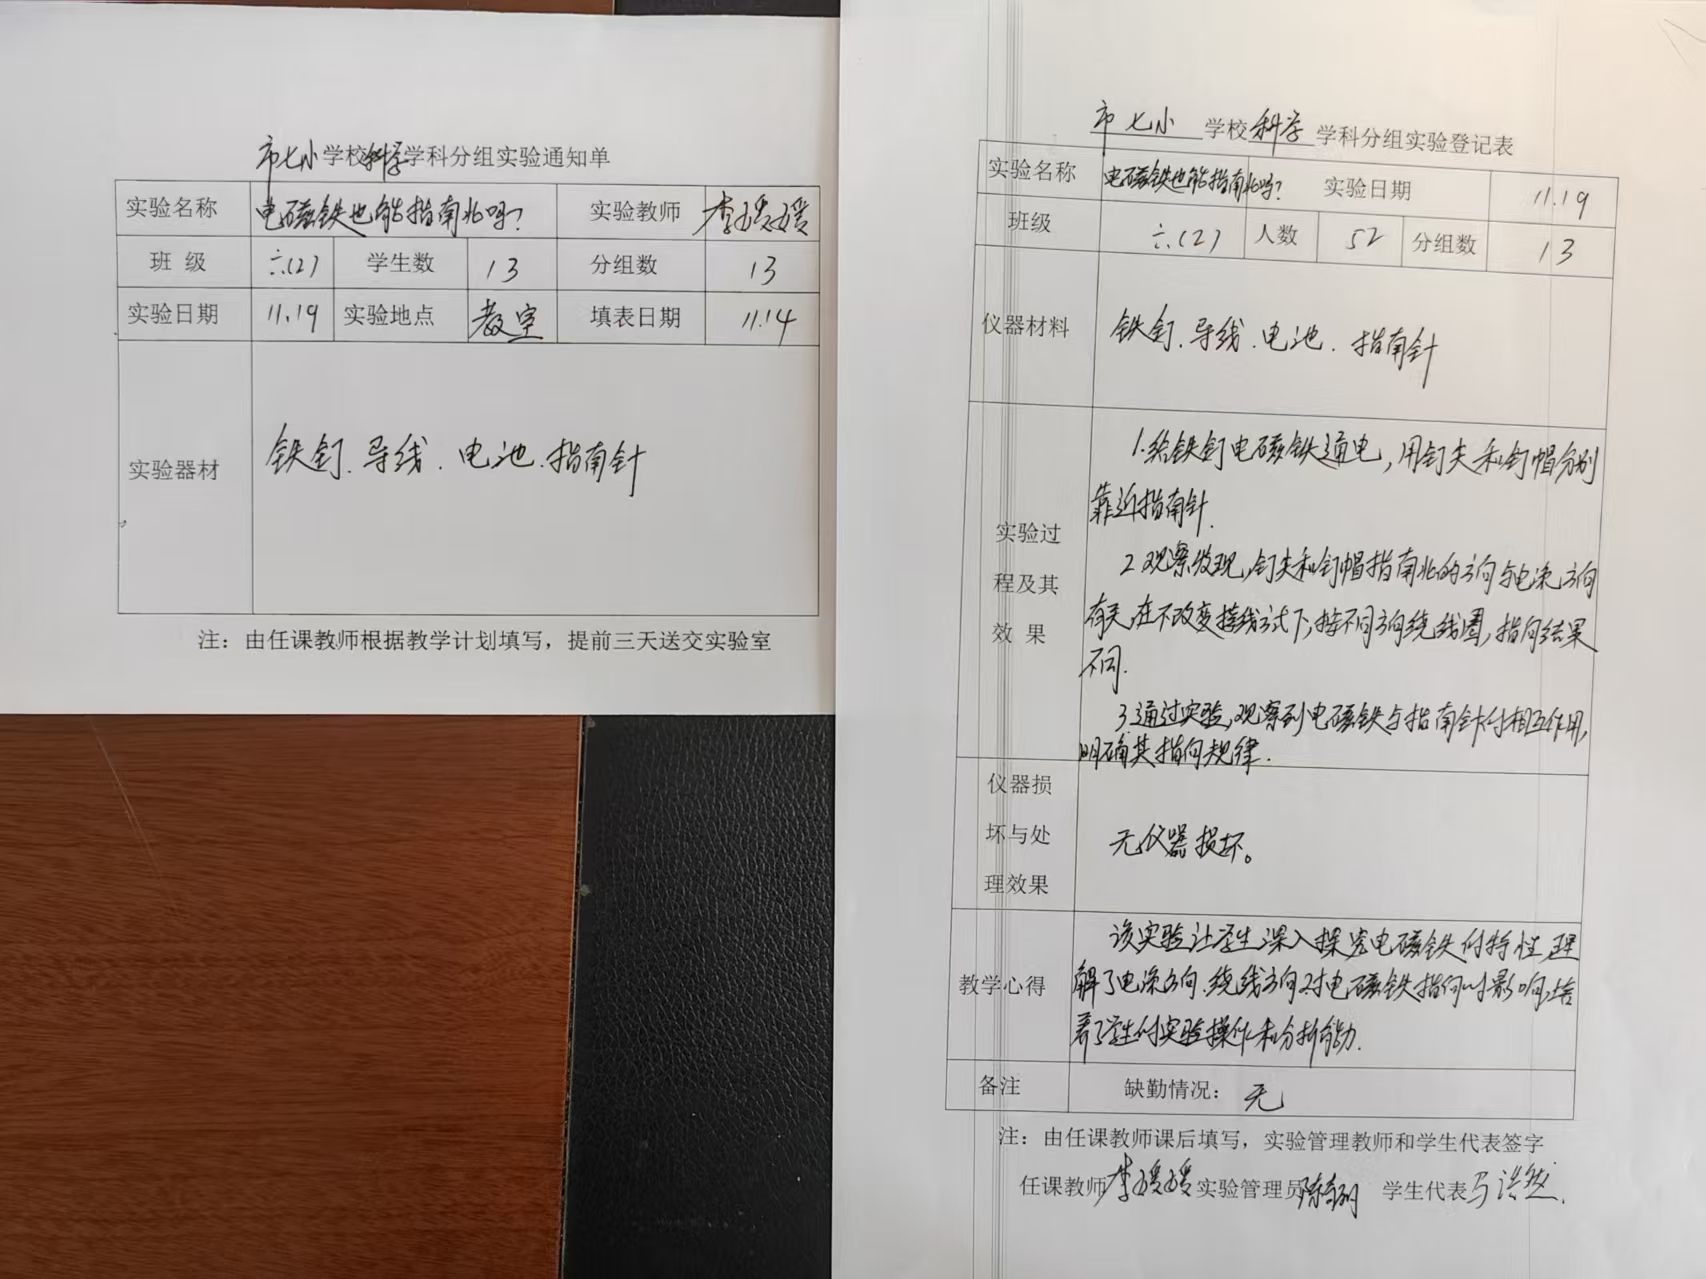 市七小学校科学学科分组实验通知单
实验名称 电磁铁也能指南北吗? 实验教师 李媛媛
班 级 六.(2) 学生数 13 分组数 13
实验日期 11.19 实验地点 教室 填表日期 11.14
实验器材 铁钉.导线.电池.指南针
注：由任课教师根据教学计划填写，提前三天送交实验室
市七小 学校 科学 学科分组实验登记表
实验名称 电磁铁也能指南北吗? 实验日期 11.19
班级 六.(2) 人数 52 分组数 13
仪器材料 铁钉.导线.电池.指南针
实验过
程及其
效 果
1.给铁钉电磁铁通电,用钉尖和钉帽分别
靠近指南针.
2.观察发现,钉尖和钉帽指南北的方向与电流方向
有关,在不改变接线方式下,按不同方向绕线圈,指向结果
不同.
3.通过实验,观察到电磁铁与指南针的相互作用,
明确其指向规律.
仪器损
坏与处
理效果
无仪器损坏。
教学心得
该实验让学生深入探究电磁铁的特性,理
解了电流方向.绕线方向对电磁铁指向的影响,培
养了学生的实验操作和分析能力.
备注 缺勤情况：无
注：由任课教师课后填写，实验管理教师和学生代表签字
任课教师李媛媛 实验管理员 学生代表马洪然.